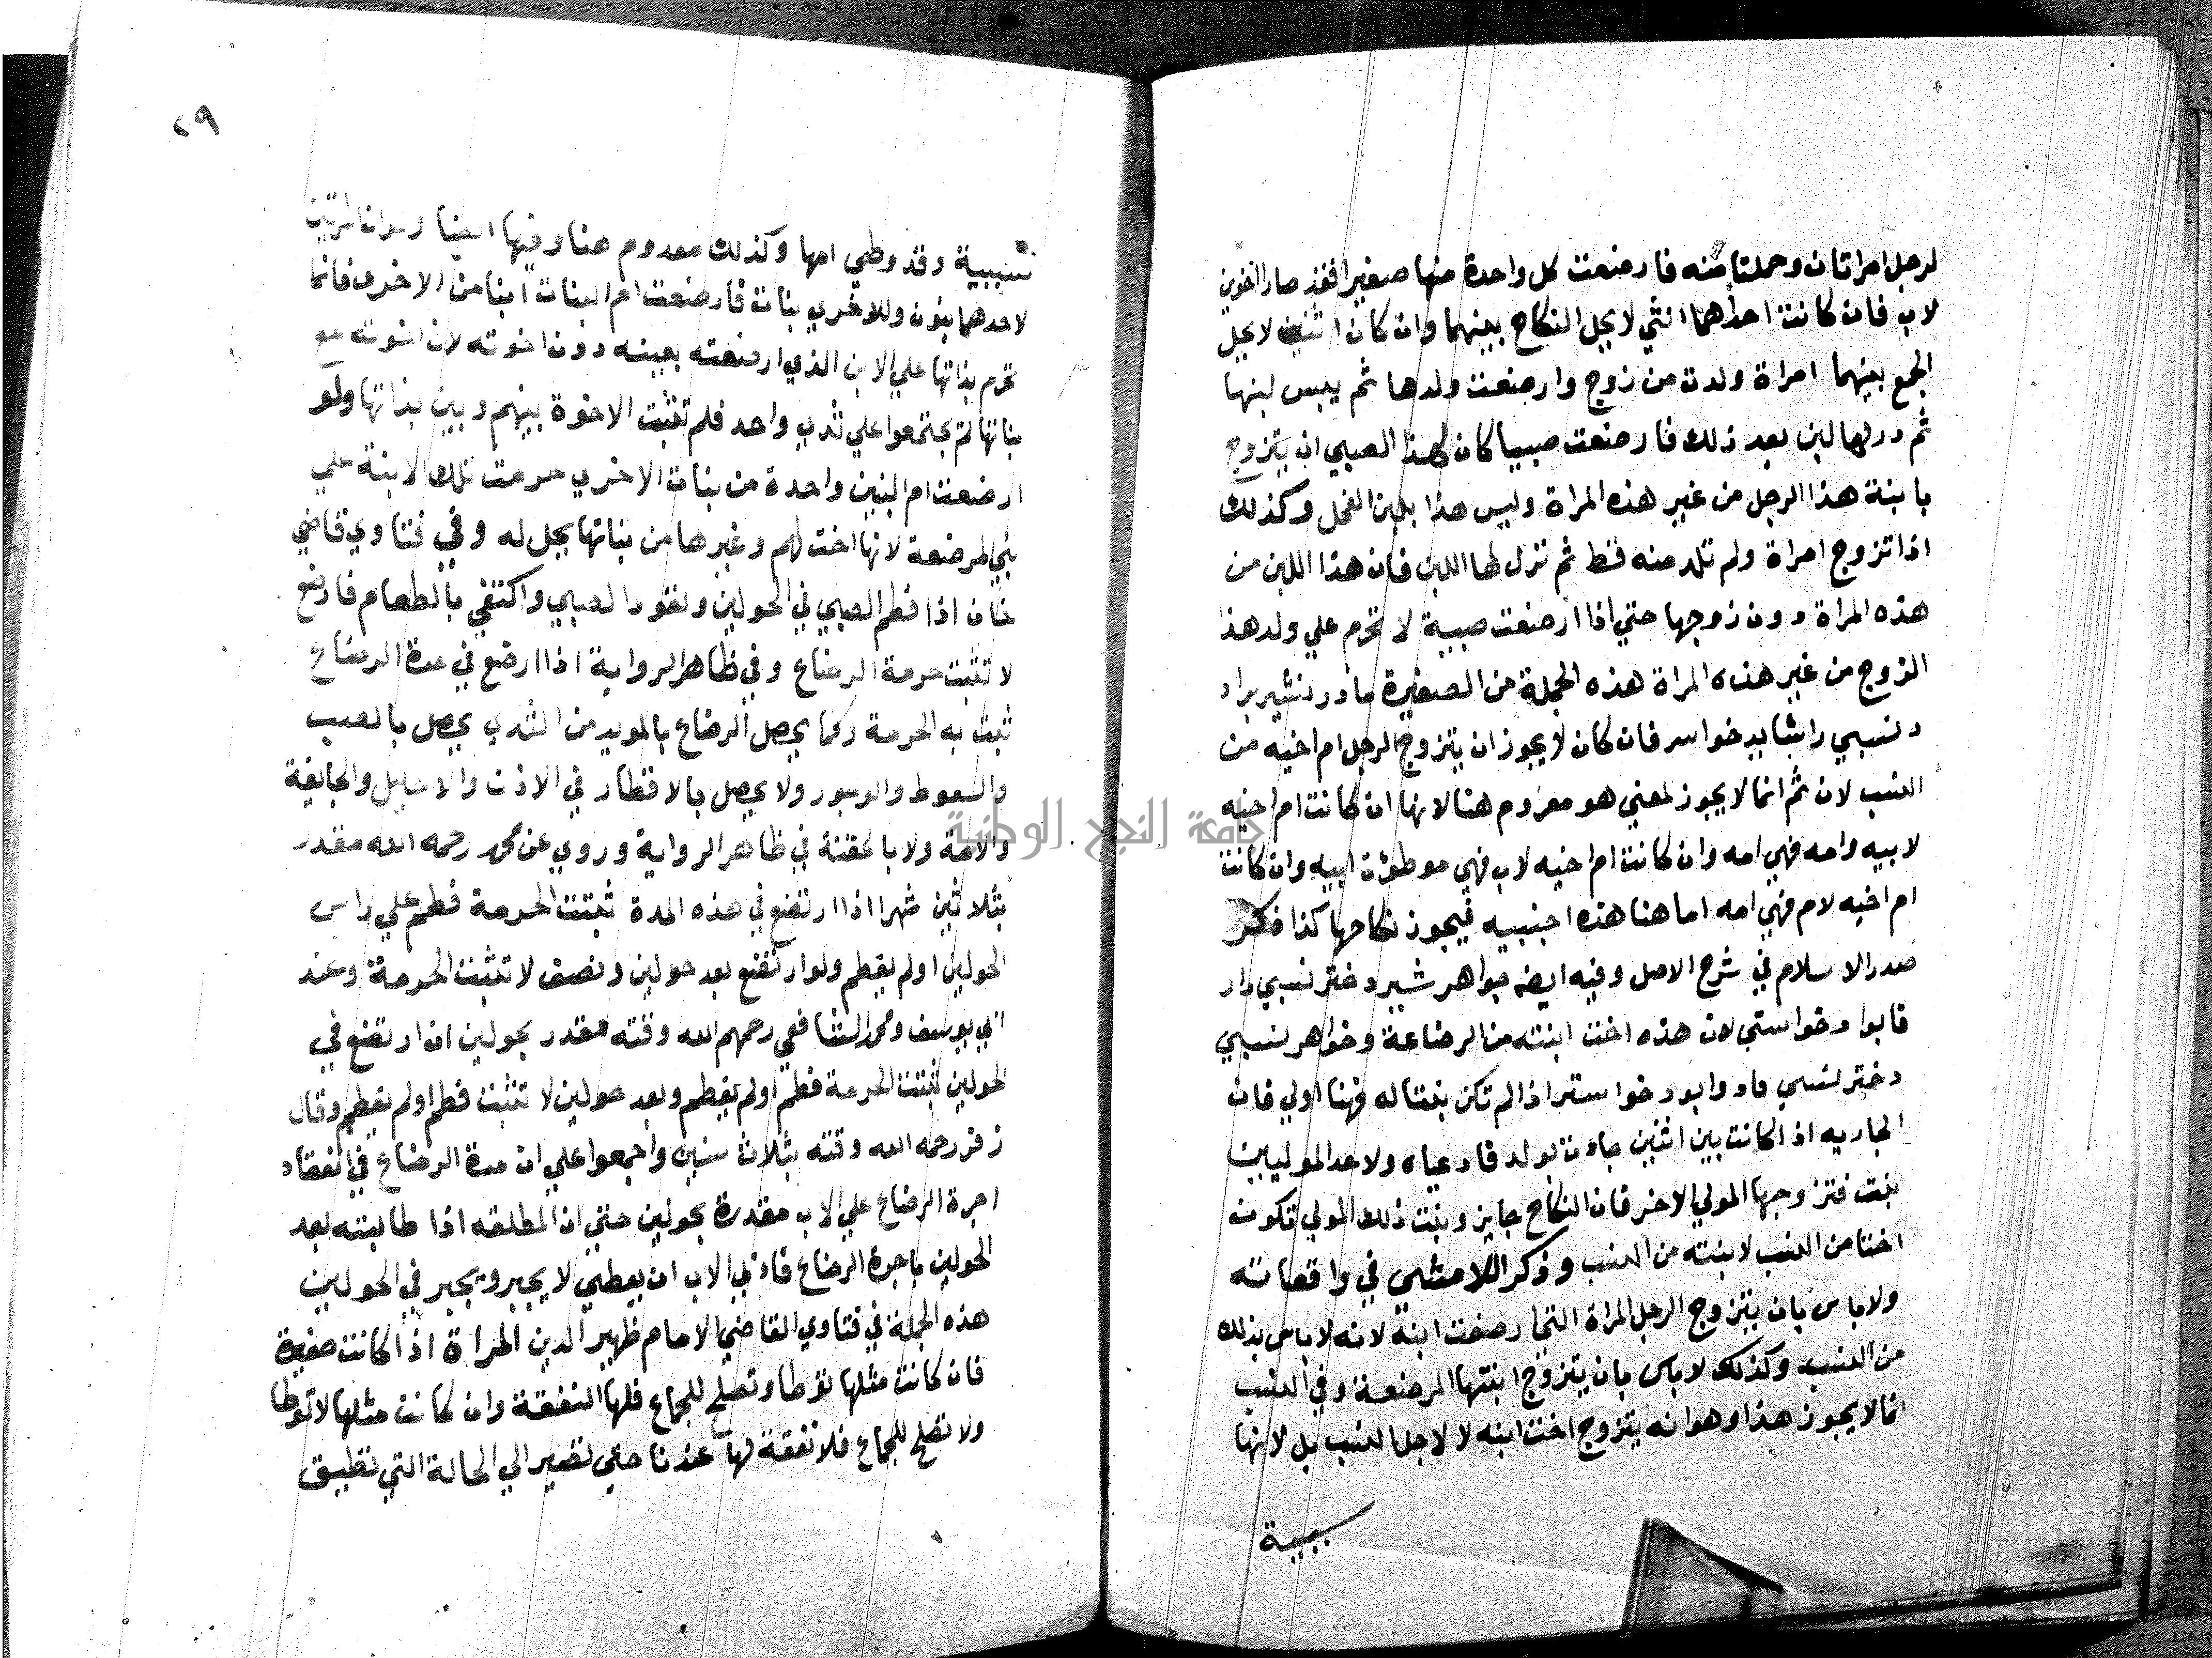 لرجل امراتان وحملتا منه فارضعت كل واحدة منها صغيرا فقد صارا اخوين
لاب فان كانت احداهما انثي لا يحل النكاح بينهما وان كان اثنين لا يحل
الجمع بينهما امراة ولدت من زوج وارضعت ولدها ثم يبس لبنها
ثم در لها لبن بعد ذلك فارضعت صبيا كان لهذا الصبي ان يتزوج
بابنة هذا الرجل من غير هذه المراة وليس هذا بلبن الفحل وكذلك
اذا تزوج امراة ولم تلد منه قط ثم نزل لها اللبن فان هذا اللبن من
هذه المراة دون زوجها حتي اذا ارضعت صبية لا تحرم علي ولد هذا
الزوج من غير هذه المراة هذه الجملة من الصغيرة مادر شير براد
نسبي را شايد خواسر فان كان لا يجوز ان يتزوج الرجل ام اخيه من
النسب لان ثم انما لا يجوز لمعني هو معدوم هنا لانها ان كانت ام اخيه
لابيه وامه فهي امه وان كانت ام اخيه لاب فهي موطؤة ابيه وان كانت
ام اخيه لام فهي امه اما هنا هذه اجنبيه فيجوز نكاحها كذا ذكر
صدر الاسلام في شرح الاصل وفيه ايضه جواهر شير دختر نسبي رار
قابوا دخواستي لان هذه اخت ابنته من الرضاعة وخواهر نسبي
دختر نسبي مادوا بود خواستر اذا لم تكن بنتا له فهنا اولي فان
الجاريه اذا كانت بين اثنين جاءت بولد فادعياه ولاحد الموليين
بنت فتزوجها المولي الاخر فان النكاح جايز وبنت ذلك المولي تكون
اختا من النسب لابنته من النسب وذكر اللامشي في واقعاته
ولا باس بان يتزوج الرجل المراة التي ارضعت ابنه لانه لا باس بذلك
من النسب وكذلك لا باس بان يتزوج ابنتها المرضعة وفي النسب
انما لا يجوز هذا وهو انه يتزوج اخت ابنه لا لاجل النسب بل لانها
سببية
٢٩
سببية وقد وطي امها وكذلك معدوم هنا وفيها ايضا ولوان امرتين
لاحدهما بنون وللاخري بنات فارضعت ام البنات ابنا من الاخري فانما
تحرم بناتها علي الابن الذي ارضعته بعينه دون اخوته لان اخوته مع
بناتها لم يجتمعوا علي ثدي واحد فلم تثبت الاخوة بينهم وبين بناتها ولو
ارضعت ام البنين واحدة من بنات الاخري حرمت تلك الابنة علي
بني المرضعة لانها اخت لهم وغيرها من بناتها يحل له وفي فتاوي قاضي
خان اذا فطم الصبي في الحولين وتعود الصبي واكتفي بالطعام فارضع
لا تثبت حرمة الرضاع وفي ظاهر الرواية اذا ارضع في مدة الرضاع
ثبت به الحرمة وكما يحصل الرضاع بالمويد من الثدي يحصل بالصب
والسعوط والوجور ولا يحصل بالاقطار في الاذن والاحليل والجايفة
والامة ولا بالحقنة في ظاهر الرواية وروي عن محمد رحمه الله مقدر
بثلاثين شهرا اذا ارتضع في هذه المدة ثبتت الحرمة فطم علي راس
الحولين او لم يفطم ولو ارتضع بعد حولين ونصف لا تثبت الحرمة وعند
ابي يوسف ومحمد والشافعي رحمهم الله وقته مقدر بحولين ان ارتضع في
الحولين ثبتت الحرمة فطم او لم يفطم وبعد حولين لا تثبت فطم او لم يفطم وقال
زفر رحمه الله وقته بثلاث سنين واجمعوا علي ان مدة الرضاع في انعقاد
اجرة الرضاع علي الاب مقدرة بحولين حتي ان المطلقه اذا طالبته بعد
الحولين باجرة الرضاع فابي الاب ان يعطي لا يجبر ويجبر في الحولين
هذه الجملة في فتاوي القاضي الامام ظهير الدين المراة اذا كانت صغيرة
فان كانت مثلها توطا وتصلح للجماع فلها النفقة وان كانت مثلها لا توطا
ولا تصلح للجماع فلا نفقة لها عندنا حتي تصير الي الحالة التي تطيق
جامعة النجاح الوطنية